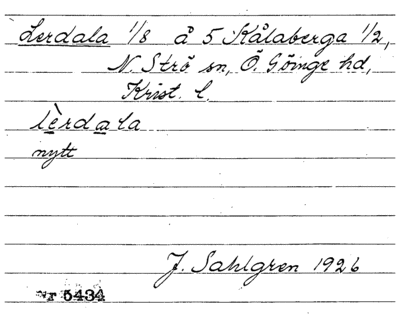 Lerdala 1/8 å 5 Kålaberga 1/2,
N. Strö sn, Ö. Göinge hd,
Krist. l.
lèrdala
nytt
J. Sahlgren 1926
Nr 5434